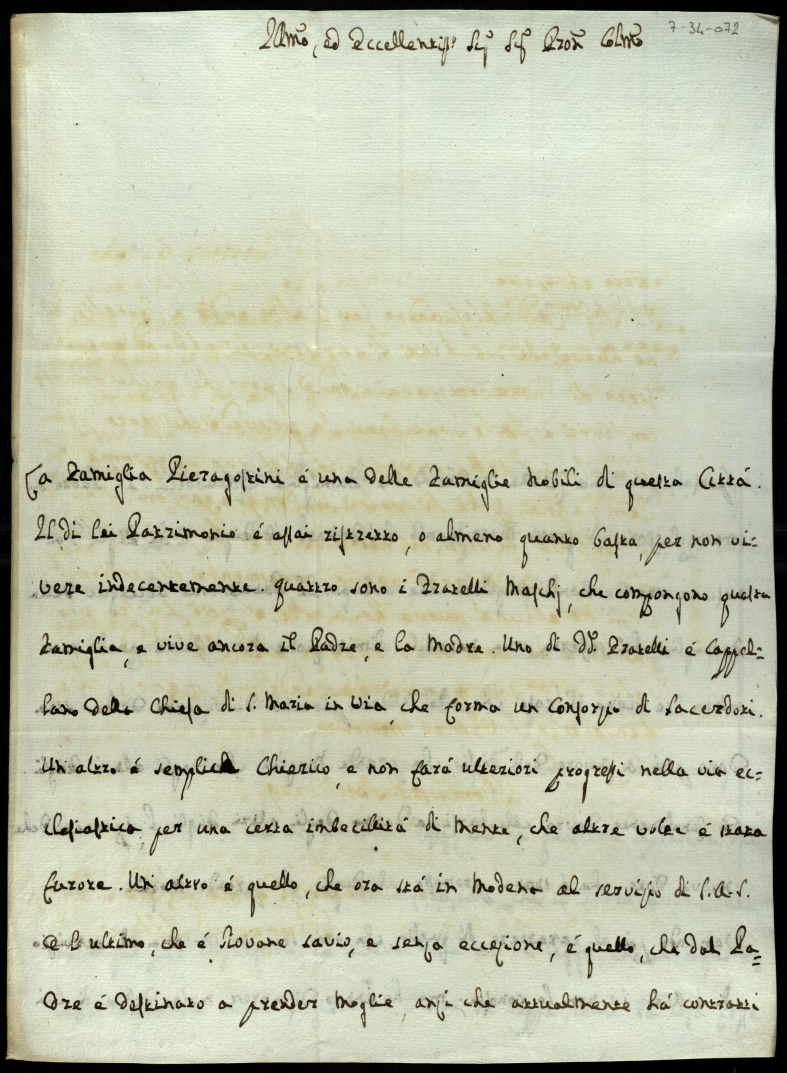 7-34-072
Illmo, ed Eccellentis.o Sig.r Sig.r Pron Colmo
La Famiglia Pieragostini é una delle Famiglie Nobili di questa Cittá.
Il di Lei Patrimonio é assai ristretto, o almeno quanto basta, per non vi=
vere indecentemente. quattro sono i Fratelli Maschj, che compongono questa
Famiglia, e vive ancora il Padre, e la Madre. Uno di DI. Fratelli é Cappel=
lano della Chiesa di S. Maria in Via, che forma un Consorzio di Sacerdoti.
Un altro é semplice Chierico, e non fará ulteriori progressi nella via ec=
clesiastica, per una certa imbecillitá di Mente, che altre volte é stata
furore. Un altro é quello, che ora stá in Modena al servizio di S.A.S.
E l'ultimo, che é Giovane savio, e senza eccezione, é quello, che dal Pa=
dre é destinato a prender Moglie, anzi che attualmente há contratti